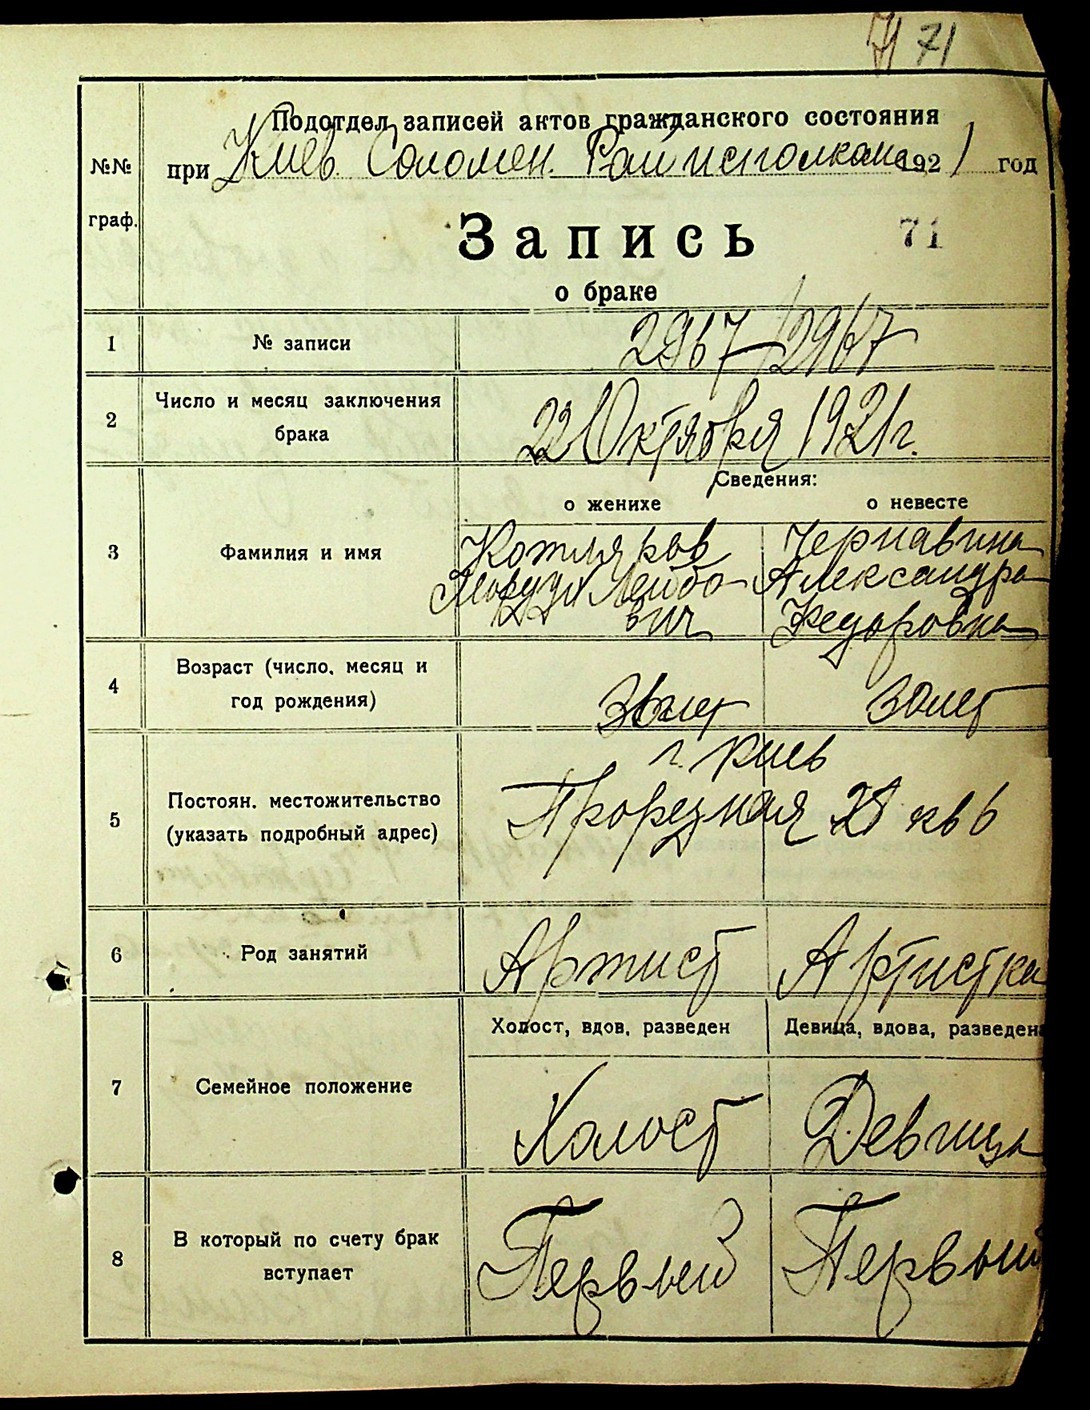 71 71
Подотдел записей актов гражданского состояния
№№ граф.
при Киев. Соломен. Райисполкоме 1921 год
Запись
71
о браке
1 № записи 2967 2967
2 Число и месяц заключения брака 22 Октября 1921 г.
Сведения:
о женихе о невесте
3 Фамилия и имя
Котляров Чернавина
Лейбо- Александра
вич Федоровна
4 Возраст (число, месяц и год рождения) лет 30 лет
г. Киев
5 Постоян. местожительство (указать подробный адрес) Прорезная 28 кв 6
6 Род занятий Артист Артистка
Холост, вдов, разведен Девица, вдова, разведена
7 Семейное положение Холост Девица
8 В который по счету брак вступает Первый Первый